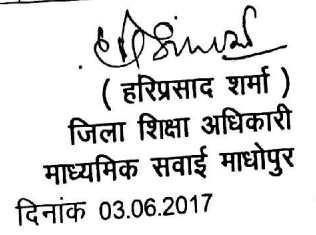 ( हरिप्रसाद शर्मा )
जिला शिक्षा अधिकारी
माध्यमिक सवाई माधोपुर
दिनांक 03.06.2017